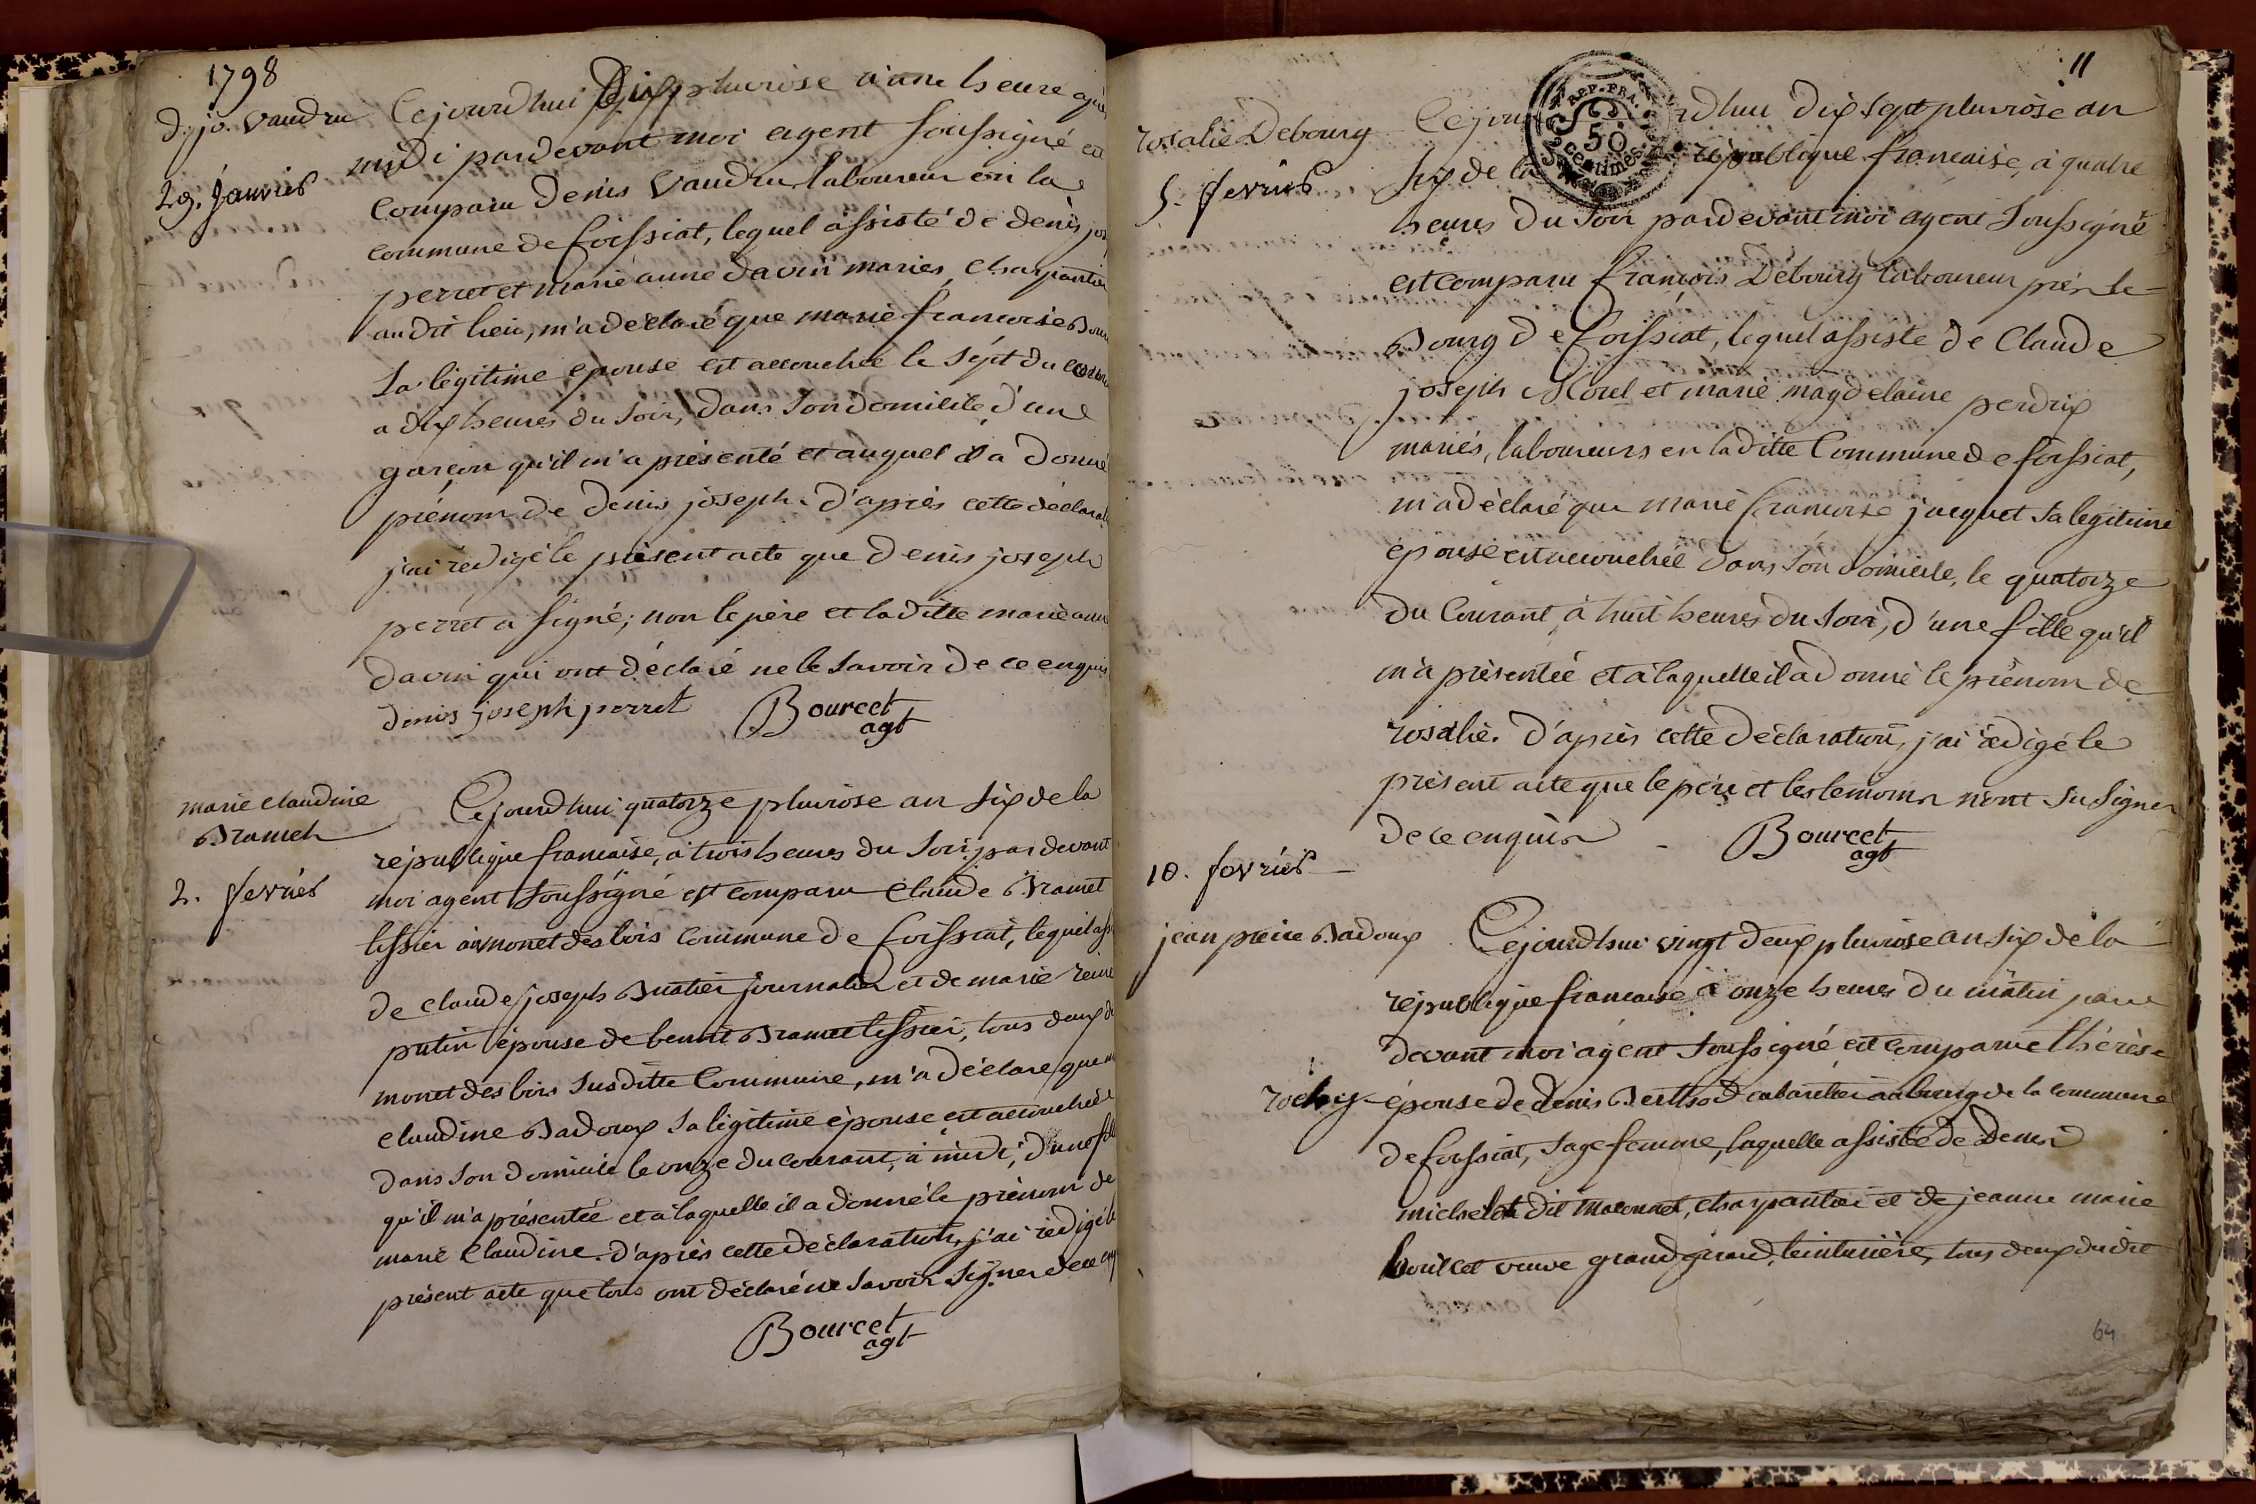 1798
d. jo. vaudru
29. janvier
Cejourdhui dix pluviose a une heure
midi pardevant moi agent soussigné est
comparu denis vaudru laboureur en la
commune de foissiat, lequel assisté de denis jos
perret et marie anne davin mariés, charpantier
audit lieu, m'a déclaré que marie francoise
sa légitime epouse est accouchée le sept du
a dix heures du soir, dans son domicile, d'un
garçon qu'il m'a présenté et auquel il a donné
prénom de denis joseph. d'après cette déclarat
j'ai rédigé le présent acte que denis joseph
perret a signé; non le père et laditte marie anne
davin qui ont déclaré ne le savoir de ce enquis
denis joseph perret Bourcet
agt
marie claudine
Bramet
2. fevrier
Cejourdhui quatorze pluviose an six de la
république francaise, à trois heures du soir, par devant
moi agent soussigné est comparu claude Bramet
tissier à monet des bois commune de foissiat, lequel ass
de claude joseph Buatier journalier et de marie reine
putin épouse de benoit Bramet tissier, tous deux d
monet des bois susditte Commune, m'a déclaré que m
claudine Badoux sa légitime épouse est accouchée
dans son domicile le onze du courant, à midi, d'une fil
qu'il m'a présentée et à laquelle il a donné le prénom de
marie Claudine. d'après cette déclaration, j'ai rédigé le
présent acte que tous ont déclaré ne savoir signer de ce enq
Bourcet
agt
11
rosalie Debourg
5. fevrier
Cejourdhui dix sept pluviôse an
six de la république francaise, à quatre
heures du soir pardevant moi agent soussigné
REP. FRA.
50
centimes
est comparu françois Debourg laboureur près le
Bourg de foissiat, lequel assisté de Claude
joseph Morel et marie magdelaine perdrix
mariés, laboureurs en laditte Commune de foissiat,
m'a déclaré que marie francoise jacquet sa légitime
épouse est accouchée dans son domicile, le quatorze
du Courant à huit heures du soir, d'une fille qu'il
m'a présentée et à laquelle il a donné le prénom de
rosalie. d'après cette déclaration, j'ai rédigé le
présent acte que le père et les témoins n'ont su signer
de ce enquis Bourcet
agt
10. fevrier
jean pierre Badoux
Cejourdhui vingt deux pluviôse an six de la
république francaise à onze heures du matin par
devant moi agent soussigné est comparue thérèse
rochy épouse de denis Berthod cabaretier au bourg de la commune
de foissiat, sage femme, laquelle assistée de denis
michelet dit maconnet, charpantier et de jeanne marie
bourcet veuve grand girard, teinturière, tous deux dudit
64